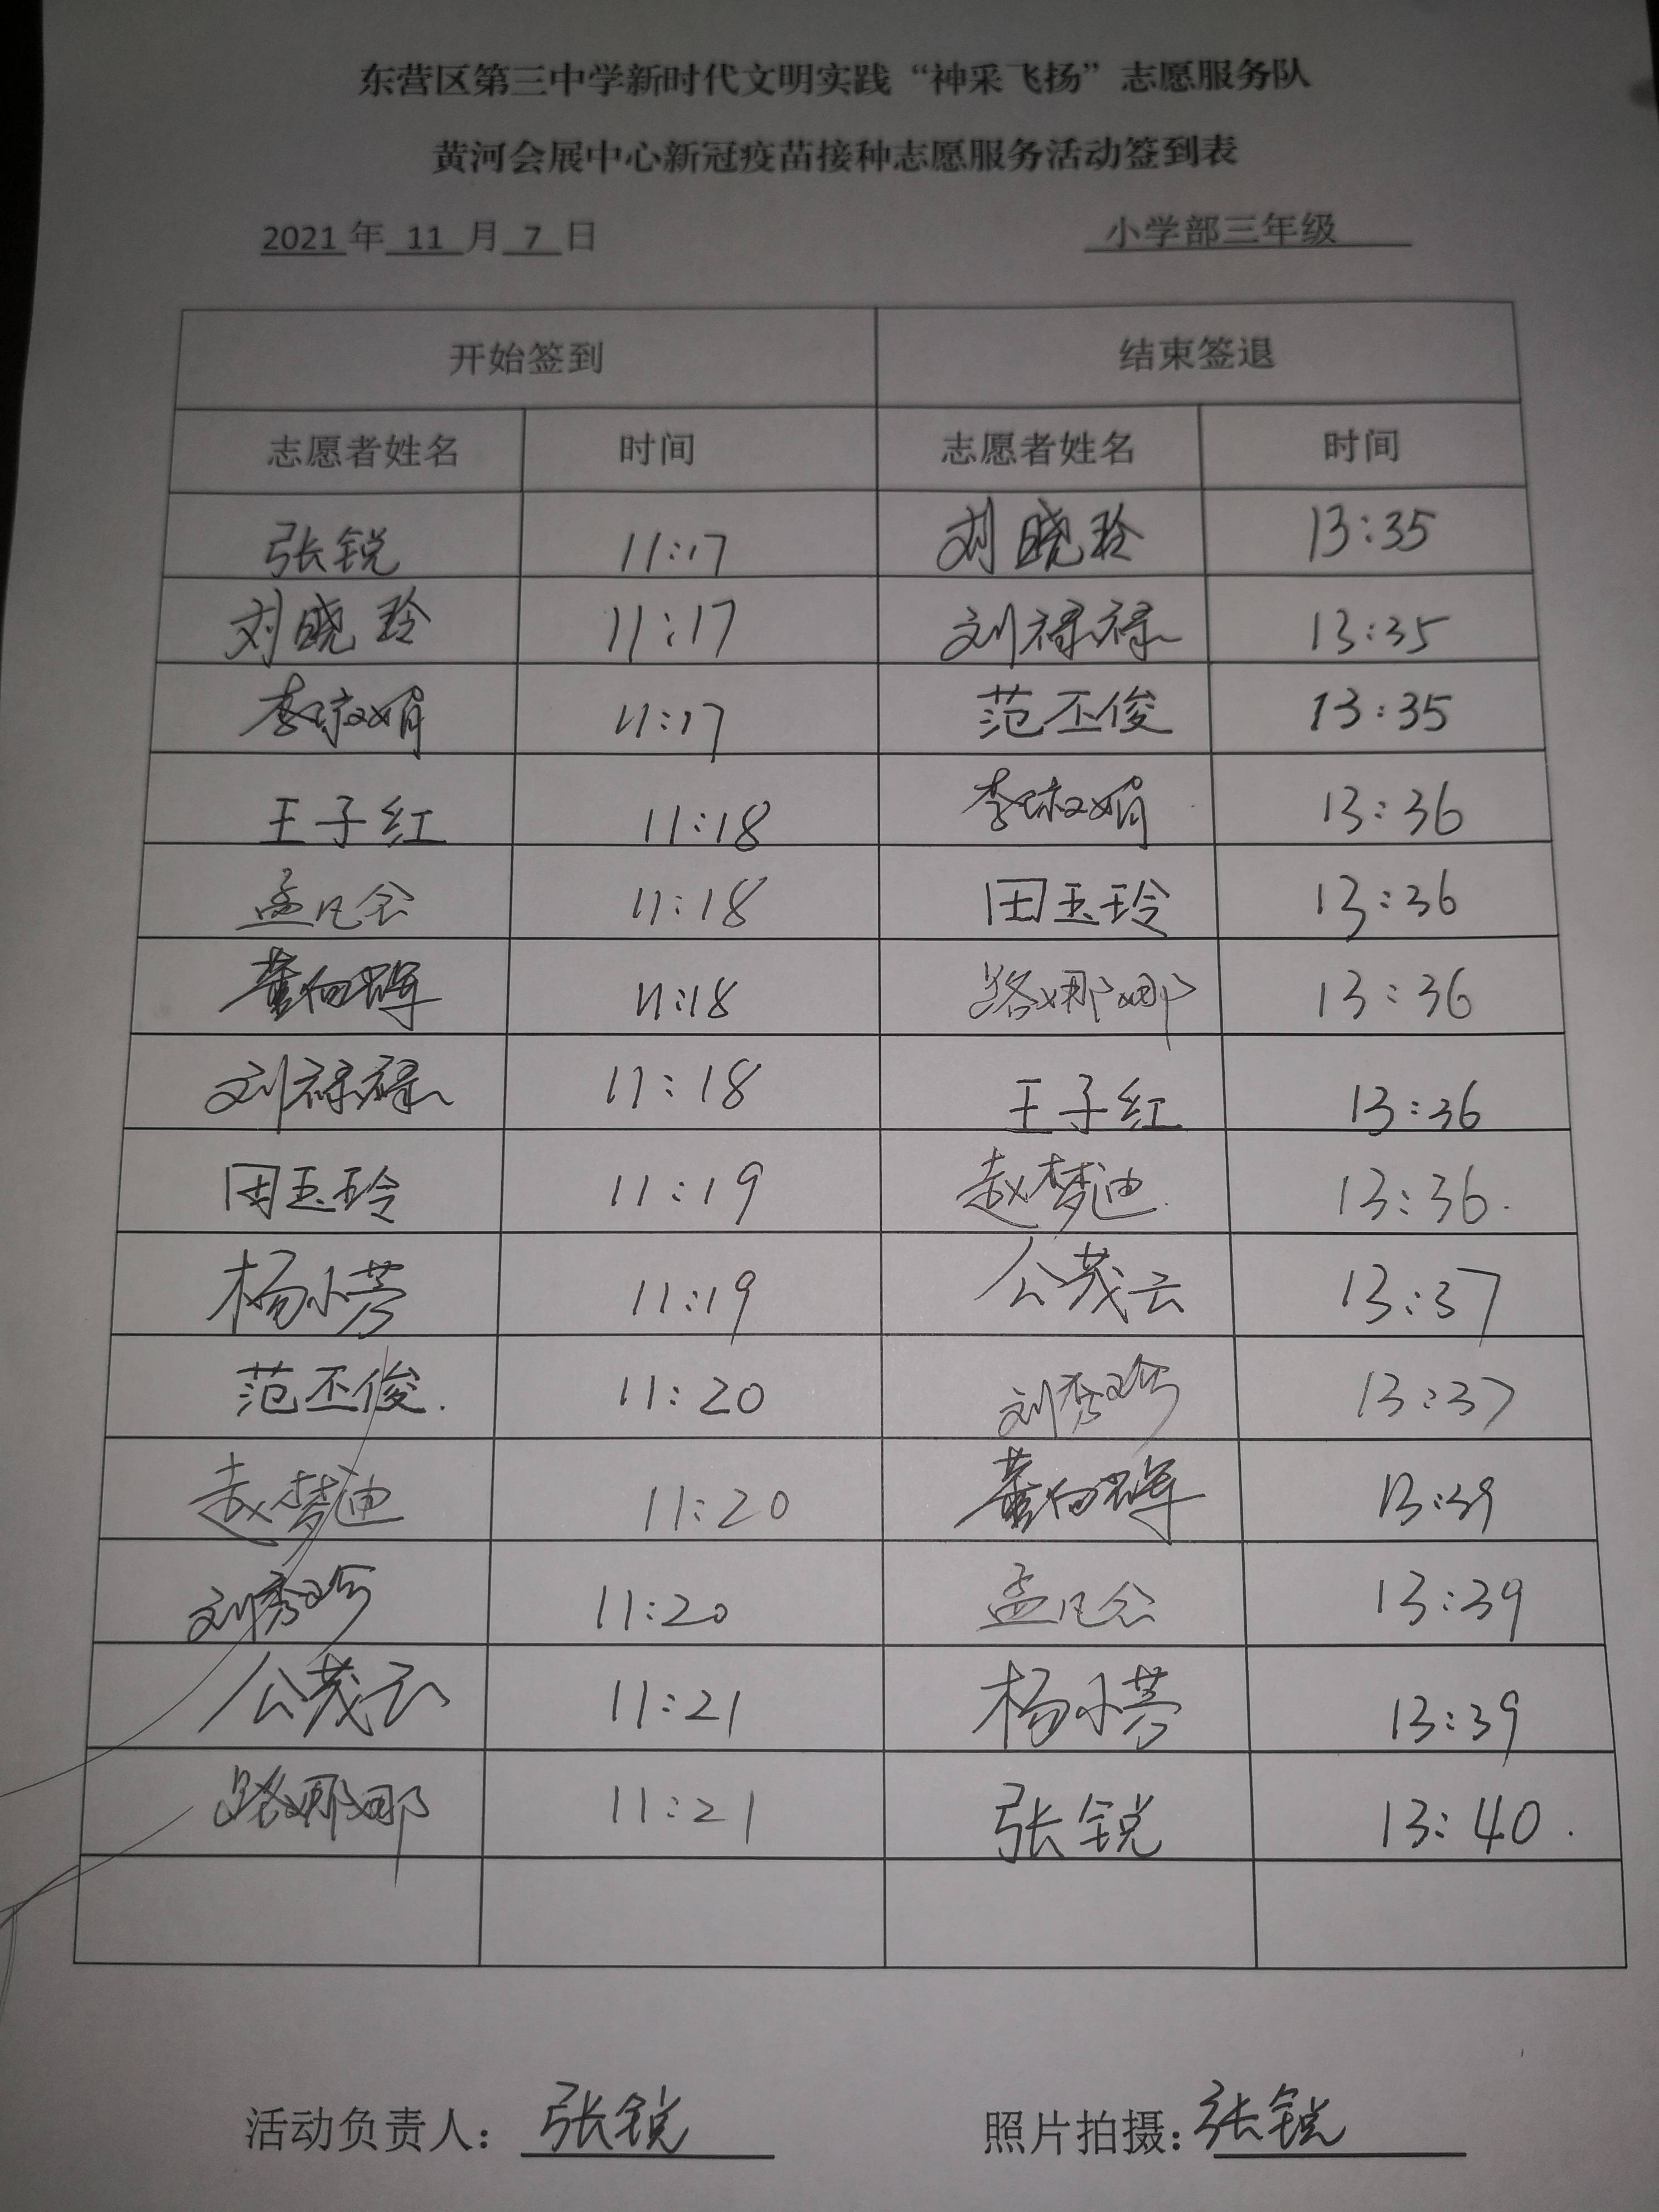 东营区第三中学新时代文明实践“神采飞扬”志愿服务队
黄河会展中心新冠疫苗接种志愿服务活动签到表
2021 年 11 月 7 日 小学部三年级
开始签到 结束签退
志愿者姓名 时间 志愿者姓名 时间
张锐 11:17 刘晓玲 13:35
刘晓玲 11:17 刘禄禄 13:35
李 娟 11:17 范丕俊 13:35
王子红 11:18 李 娟 13:36
孟凡会 11:18 田玉玲 13:36
董向晖 11:18 路娜娜 13:36
刘禄禄 11:18 王子红 13:36
田玉玲 11:19 赵梦迪 13:36.
杨小芳 11:19 公茂云 13:37
范丕俊. 11:20 刘秀 13:37
赵梦迪 11:20 董向晖 13:39
刘秀 11:20 孟凡会 13:39
公茂云 11:21 杨小芳 13:39
路娜娜 11:21 张锐 13:40.
活动负责人：张锐 照片拍摄：张锐